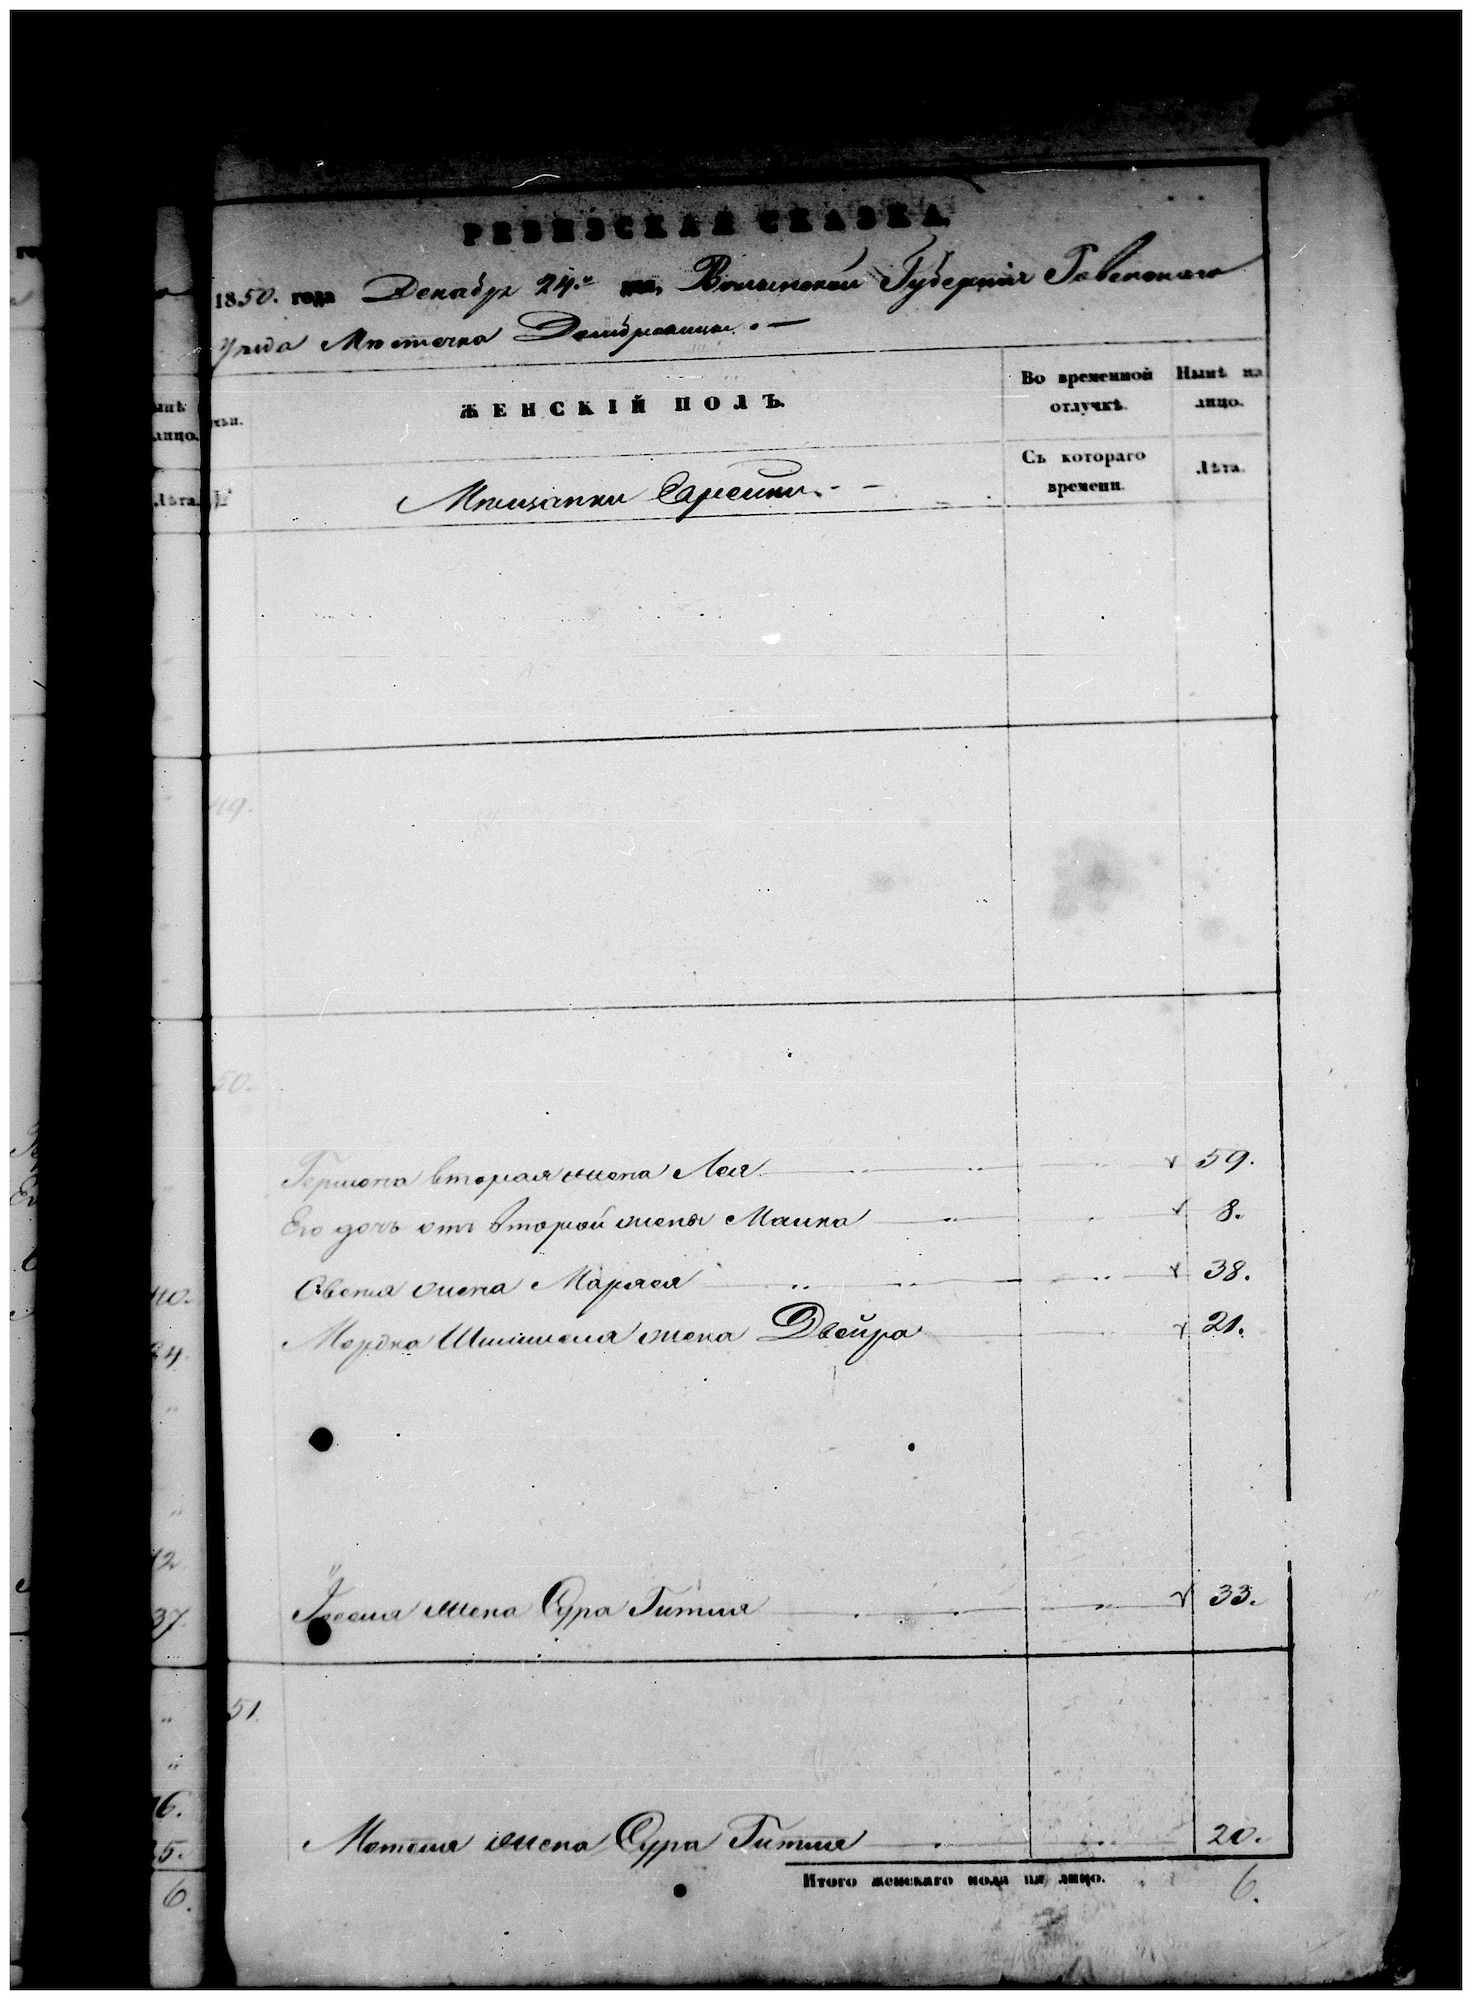 РЕВИЗСКАЯ СКАЗКА
1850. года Декабря 24.го дня, Волынской Губернии Ровенскаго
Уезда Местечка Домбровицы. —
ЖЕНСКІЙ ПОЛЪ.
Во временной отлучкѣ.
Нынѣ на лицо.
Съ котораго времени.
Лѣта.
№
Мещанки Еврейки. - -
49.
50.
Гершона вторая жена Лея 59.
Его дочь отъ второй жены Малка 8.
Овсея жена Маряся 38.
Мордка Шмишеля жена Двейра 21.
Иоселя жена Сура Гитля 33.
51.
Мотеля жена Сура Гитля 20.
Итого женскаго пола на лицо. 6.
ынѣ
лицо.
Лѣта.
40.
37.
6.
5.
6.